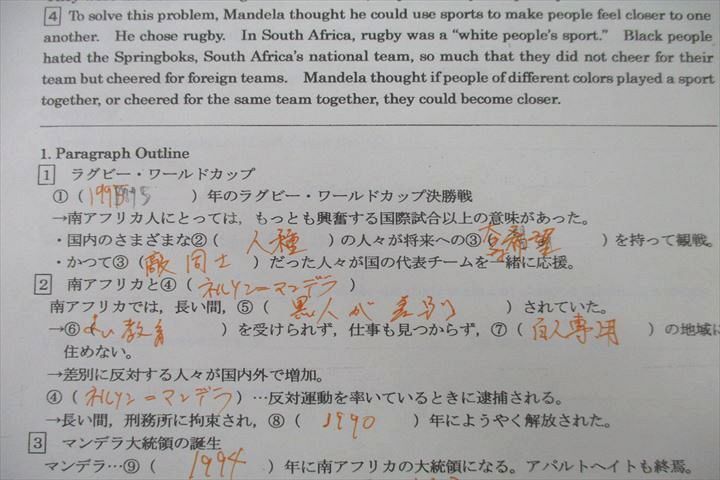 4 To solve this problem, Mandela thought he could use sports to make people feel closer to one
another. He chose rugby. In South Africa, rugby was a “white people's sport.” Black people
hated the Springboks, South Africa's national team, so much that they did not cheer for their
team but cheered for foreign teams. Mandela thought if people of different colors played a sport
together, or cheered for the same team together, they could become closer.
1. Paragraph Outline
1 ラグビー・ワールドカップ
①( 1995 )年のラグビー・ワールドカップ決勝戦
→南アフリカ人にとっては，もっとも興奮する国際試合以上の意味があった。
・国内のさまざまな②( 人種 )の人々が将来への③( 希望 )を持って観戦。
・かつて③( 敵同士 )だった人々が国の代表チームを一緒に応援。
2 南アフリカと④( ネルソン=マンデラ )
南アフリカでは，長い間，⑤( 黒人が差別 )されていた。
→⑥( よい教育 )を受けられず，仕事も見つからず，⑦( 白人専用 )の地域に
住めない。
→差別に反対する人々が国内外で増加。
④( ネルソン=マンデラ )…反対運動を率いているときに逮捕される。
→長い間，刑務所に拘束され，⑧( 1990 )年にようやく解放された。
3 マンデラ大統領の誕生
マンデラ…⑨( 1994 )年に南アフリカの大統領になる。アパルトヘイトも終焉。